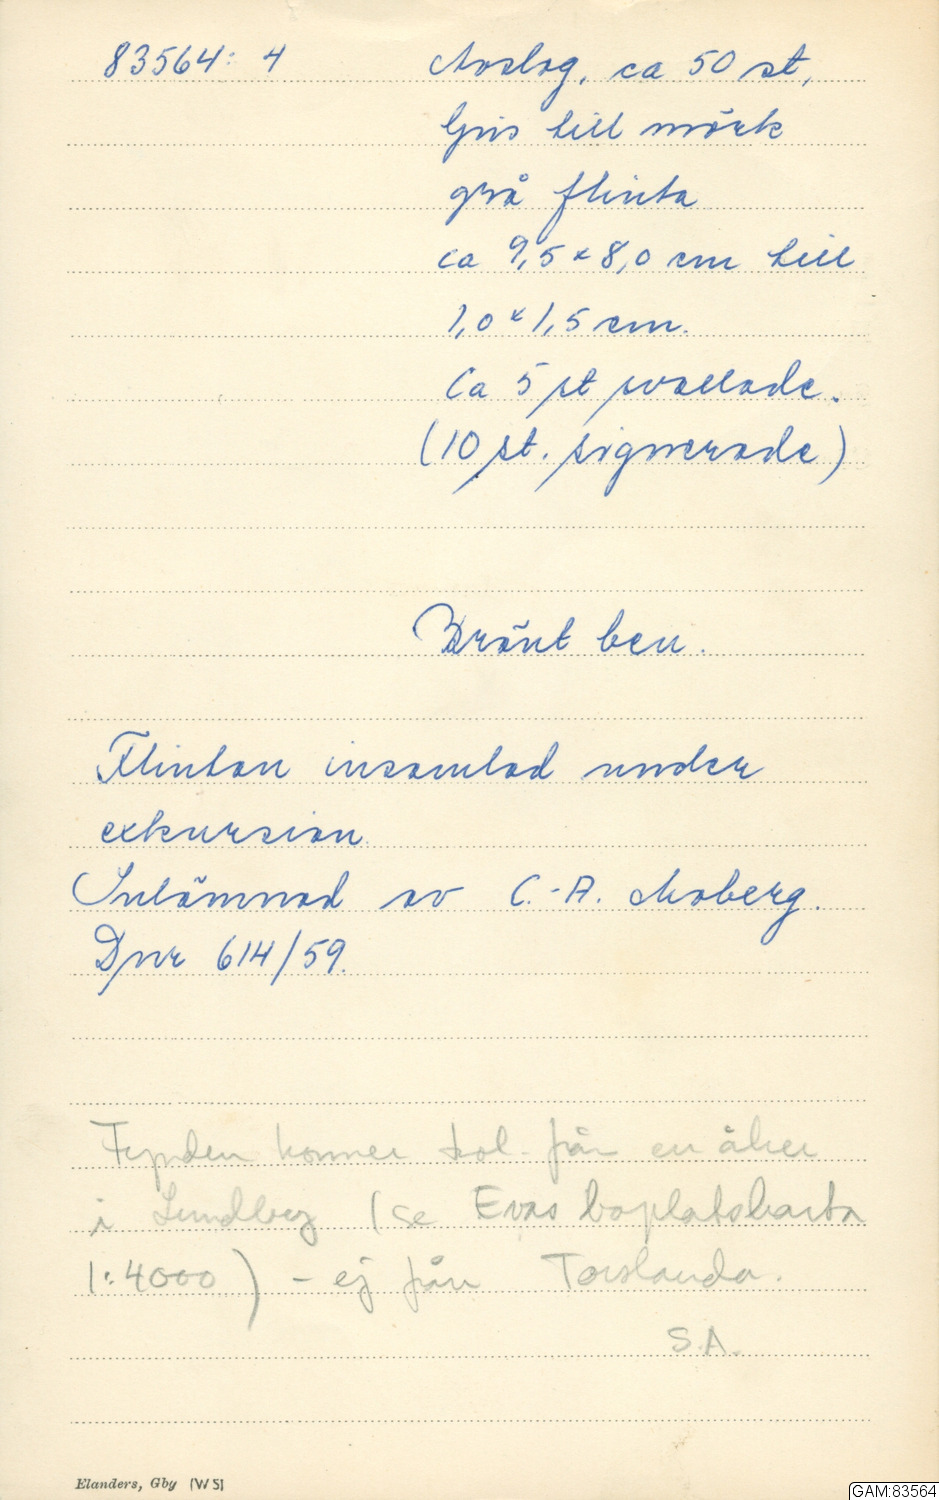 83564: 4 Avslag, ca 50 st,
Gris till mörk
grå flinta
ca 9,5 x 8,0 cm till
1,0 x 1,5 cm.
Ca 5 st svallade.
(10 st. signerade)
Bränt ben.
Flintan insamlad under
exkursion
Inlämnad av C.-A. Moberg.
Dnr 614/59.
Fynden kommer från en åker
i Lundby (se Evas boplatskarta
1:4000) - ej från Torslanda.
S.A.
Elanders, Gbg (WS)
GAM:83564